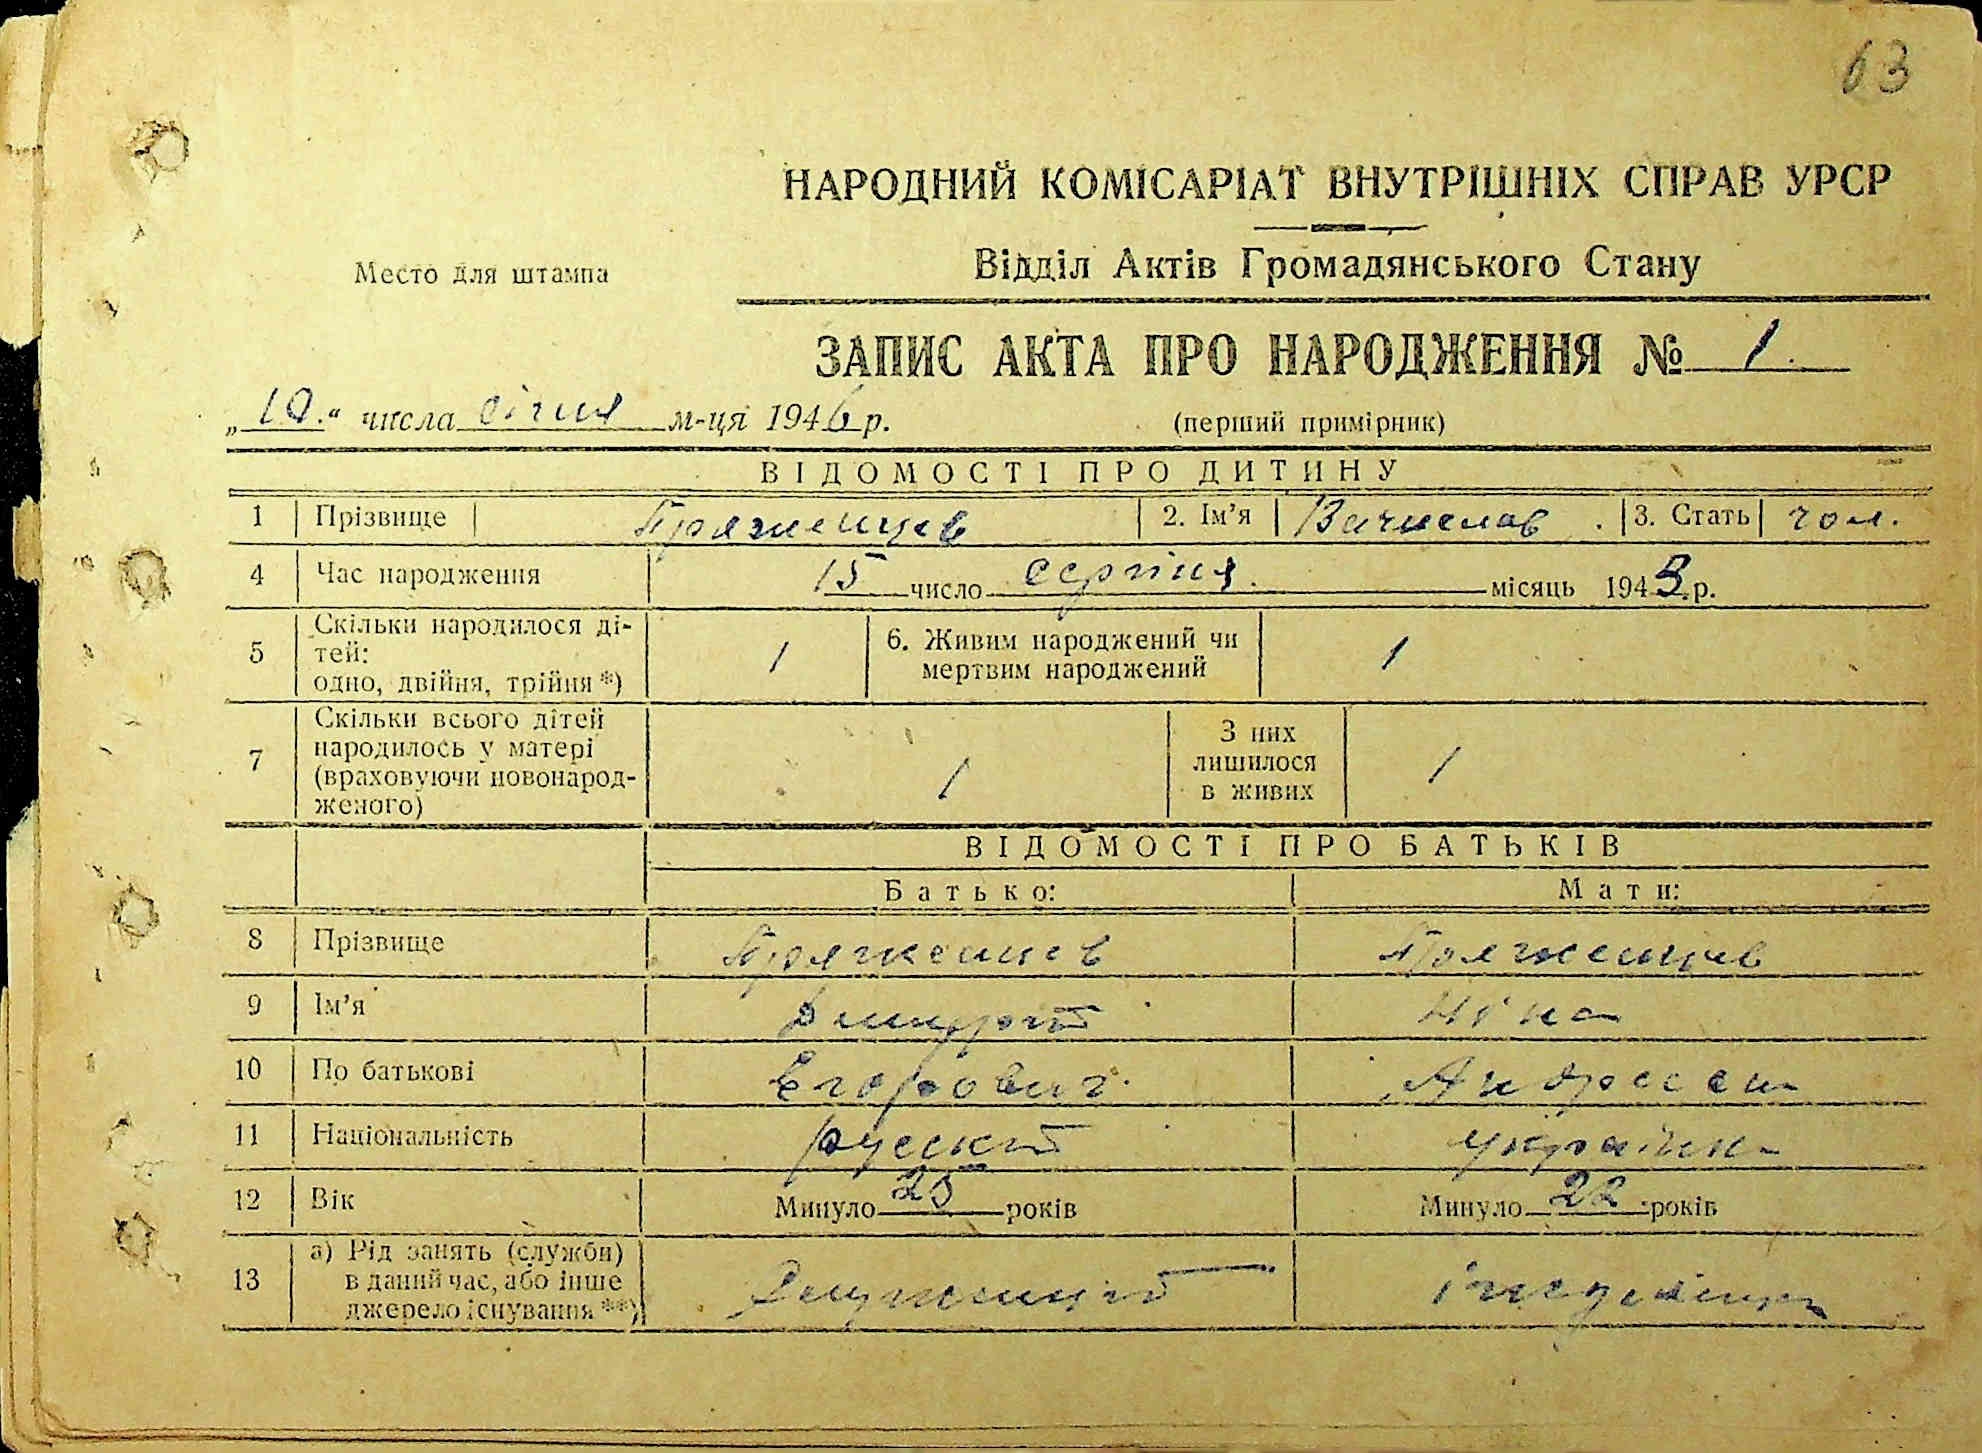 63
НАРОДНИЙ КОМІСАРІАТ ВНУТРІШНІХ СПРАВ УРСР
Відділ Актів Громадянського Стану
Место для штампа
ЗАПИС АКТА ПРО НАРОДЖЕННЯ № 1.
„10.“ числа січня м-ця 1946 р.
(перший примірник)
ВІДОМОСТІ ПРО ДИТИНУ
1 Прізвище Пряженцев 2. Ім’я Вячислав. 3. Стать чол.
4 Час народження 15 число серпня. місяць 1943.р.
5 Скільки народилося ді-
тей:
одно, двійня, трійня *)
1
6. Живим народжений чи
мертвим народжений
1
7 Скільки всього дітей
народилось у матері
(враховуючи новонарод-
женого)
1
З них
лишилося
в живих
1
ВІДОМОСТІ ПРО БАТЬКІВ
Батько: Мати:
8 Прізвище Пряженцев Пряженцев
9 Ім’я Дмитрий Ніна
10 По батькові Егорович.
11 Національність русский українка
12 Вік Минуло 25 років Минуло 22 років
13 а) Рід занять (служби)
в даний час, або інше
джерело існування **)